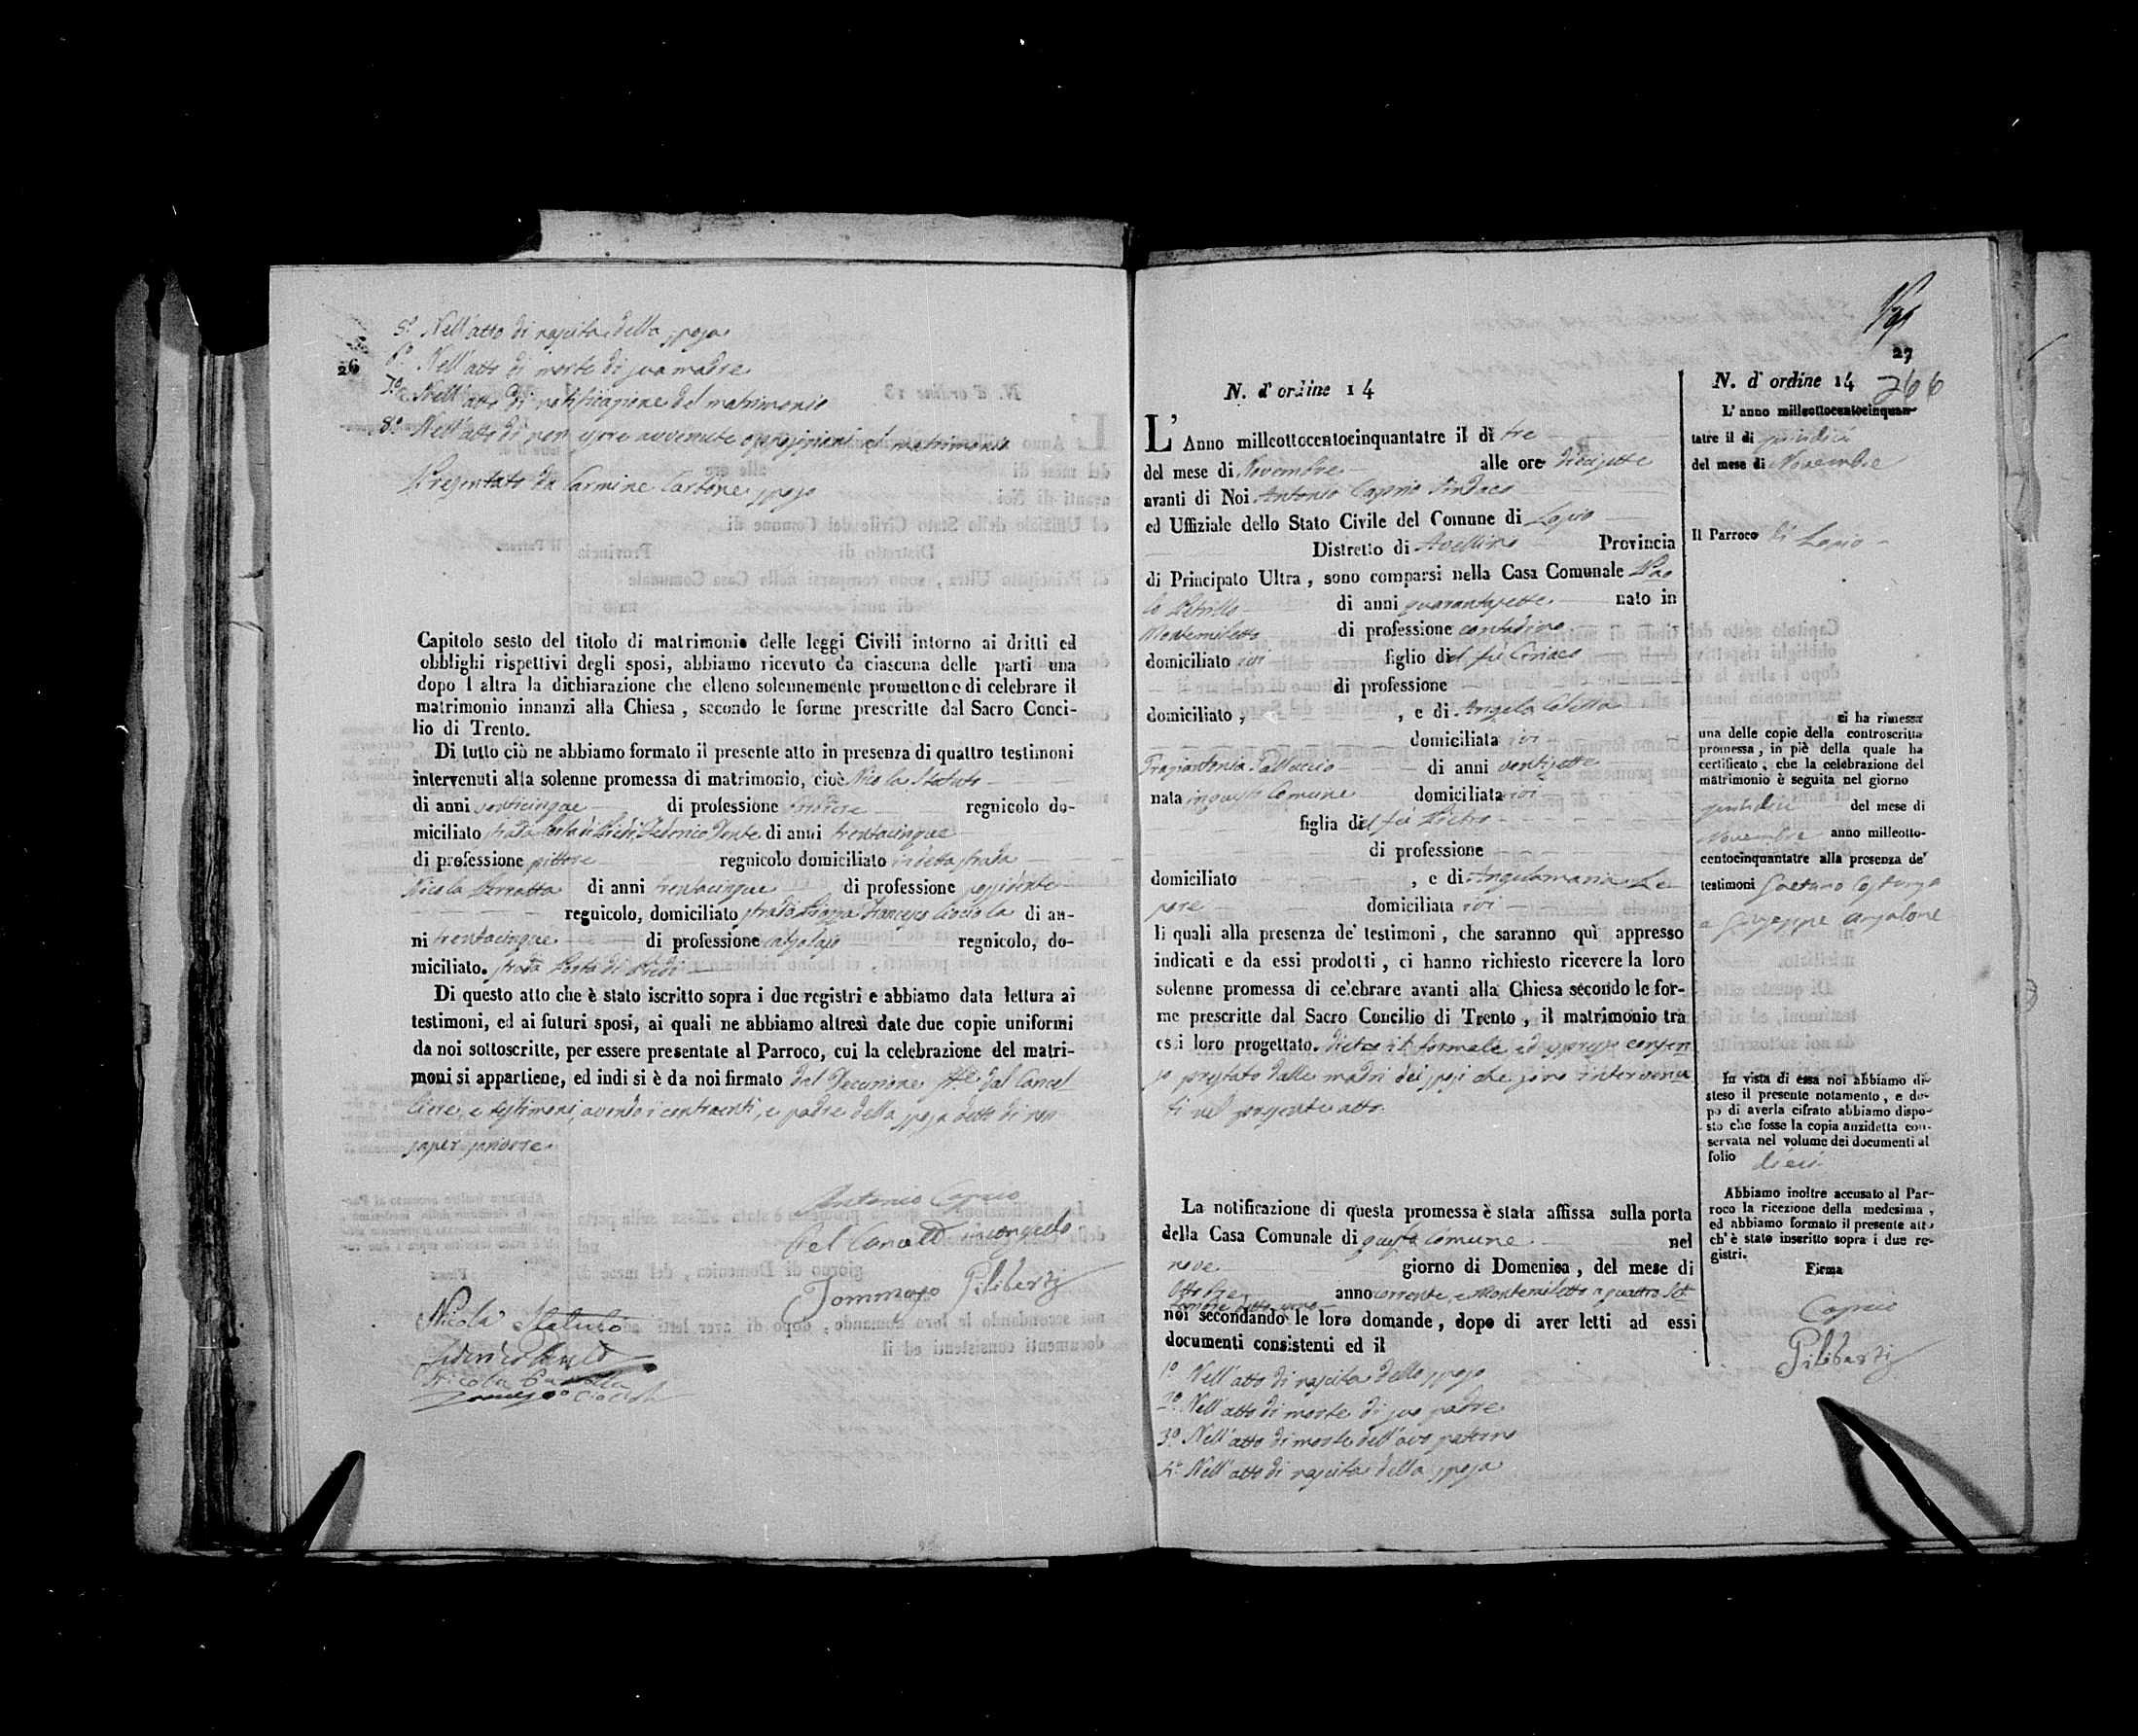 26
5.º Nell'atto di nascita della sposa
6.º Nell'atto di morte di sua madre
7.º Nell'atto di notificazione del matrimonio
8.º Nell'atto di non essere avvenute opposizioni al matrimonio
Presentato da Carmine Carbone sposo
Capitolo sesto del titolo di matrimonio delle leggi Civili intorno ai dritti ed
obblighi rispettivi degli sposi, abbiamo ricevuto da ciascuna delle parti una
dopo l altra la dichiarazione che elleno solennemente promettono di celebrare il
matrimonio innanzi alla Chiesa, secondo le forme prescritte dal Sacro Conci-
lio di Trento.
Di tutto ciò ne abbiamo formato il presente atto in presenza di quattro testimoni
intervenuti alla solenne promessa di matrimonio, cioè Nicola Statuto
di anni venticinque di professione regnicolo do-
miciliato strada Porta di Piedi, Federico Dente di anni trentacinque
di professione pittore regnicolo domiciliato in detta strada
Nicola di anni trentacinque di professione possidente
regnicolo, domiciliato strada Piazza Francesco Cioccola di an-
ni trentacinque di professione calzolajo regnicolo, do-
miciliato. strada Porta di Piedi
Di questo atto che è stato iscritto sopra i due registri e abbiamo data lettura ai
testimoni, ed ai futuri sposi, ai quali ne abbiamo altresì date due copie uniformi
da noi sottoscritte, per essere presentate al Parroco, cui la celebrazione del matri-
moni si appartiene, ed indi si è da noi firmato dal Decurione ff.te dal Cancel
liere, e testimoni, avendo i contraenti, e padre della sposa detto di non
saper scrivere
Antonio Caprio
Tommaso Piliberti
Nicola Statuto
27
266
N. d' ordine 14
L' Anno millcottocentocinquantatre il dì tre
del mese di Novembre alle ore diecisette
avanti di Noi Antonio Caprio Sindaco
ed Uffiziale dello Stato Civile del Comune di Lapio
Distretto di Avellino Provincia
di Principato Ultra, sono comparsi nella Casa Comunale Pao
lo Petrillo di anni quarantasette nato in
Montemiletto di professione contadino
domiciliato ivi figlio del fù Ciriaco
di professione
domiciliato, , e di Angela
domiciliata ivi
di anni ventisette
nata in questo Comune domiciliata ivi
figlia del fù Pietro
di professione
domiciliato , e di Angelamaria Le
pore domiciliata ivi
li quali alla presenza de' testimoni, che saranno quì appresso
indicati e da essi prodotti, ci hanno richiesto ricevere la loro
solenne promessa di celebrare avanti alla Chiesa secondo le for-
me prescritte dal Sacro Concilio di Trento, il matrimonio tra
essi loro progettato. dietro il formale ed espresso consen
so prestato dalle madri dei sposi che sono intervenu
ti nel presente atto.
La notificazione di questa promessa è stata affissa sulla porta
della Casa Comunale di questo Comune nel
nove giorno di Domenica, del mese di
Ottobre anno corrente, e Montemiletto a quattro Set
tembre detto anno
noi secondando le loro domande, dopo di aver letti ad essi
documenti consistenti ed il
1.º Nell'atto di nascita dello sposo
2.º Nell'atto di morte di suo padre
3.º Nell'atto di morte dell'avo paterno
4.º Nell'atto di nascita della sposa
N. d' ordine 14
L' anno millcottocentocinquan-
tatre il dì quindici
del mese di Novembre
Il Parroco di Lapio
ci ha rimessa
una delle copie della controscritta
promessa, in piè della quale ha
certificato, che la celebrazione del
matrimonio è seguita nel giorno
quindici del mese di
Novembre anno milleotto-
centocinquantatre alla presenza de'
testimoni Gaetano
e Giuseppe
In vista di essa noi abbiamo di-
steso il presente notamento, e do-
po di averla cifrato abbiamo dispo-
sto che fosse la copia anzidetta con-
servata nel volume dei documenti al
folio dieci
Abbiamo inoltre accusato al Par-
roco la ricezione della medesima,
ed abbiamo formato il presente atto
ch' è stato inscritto sopra i due re-
gistri.
Firma
Caprio
Piliberti